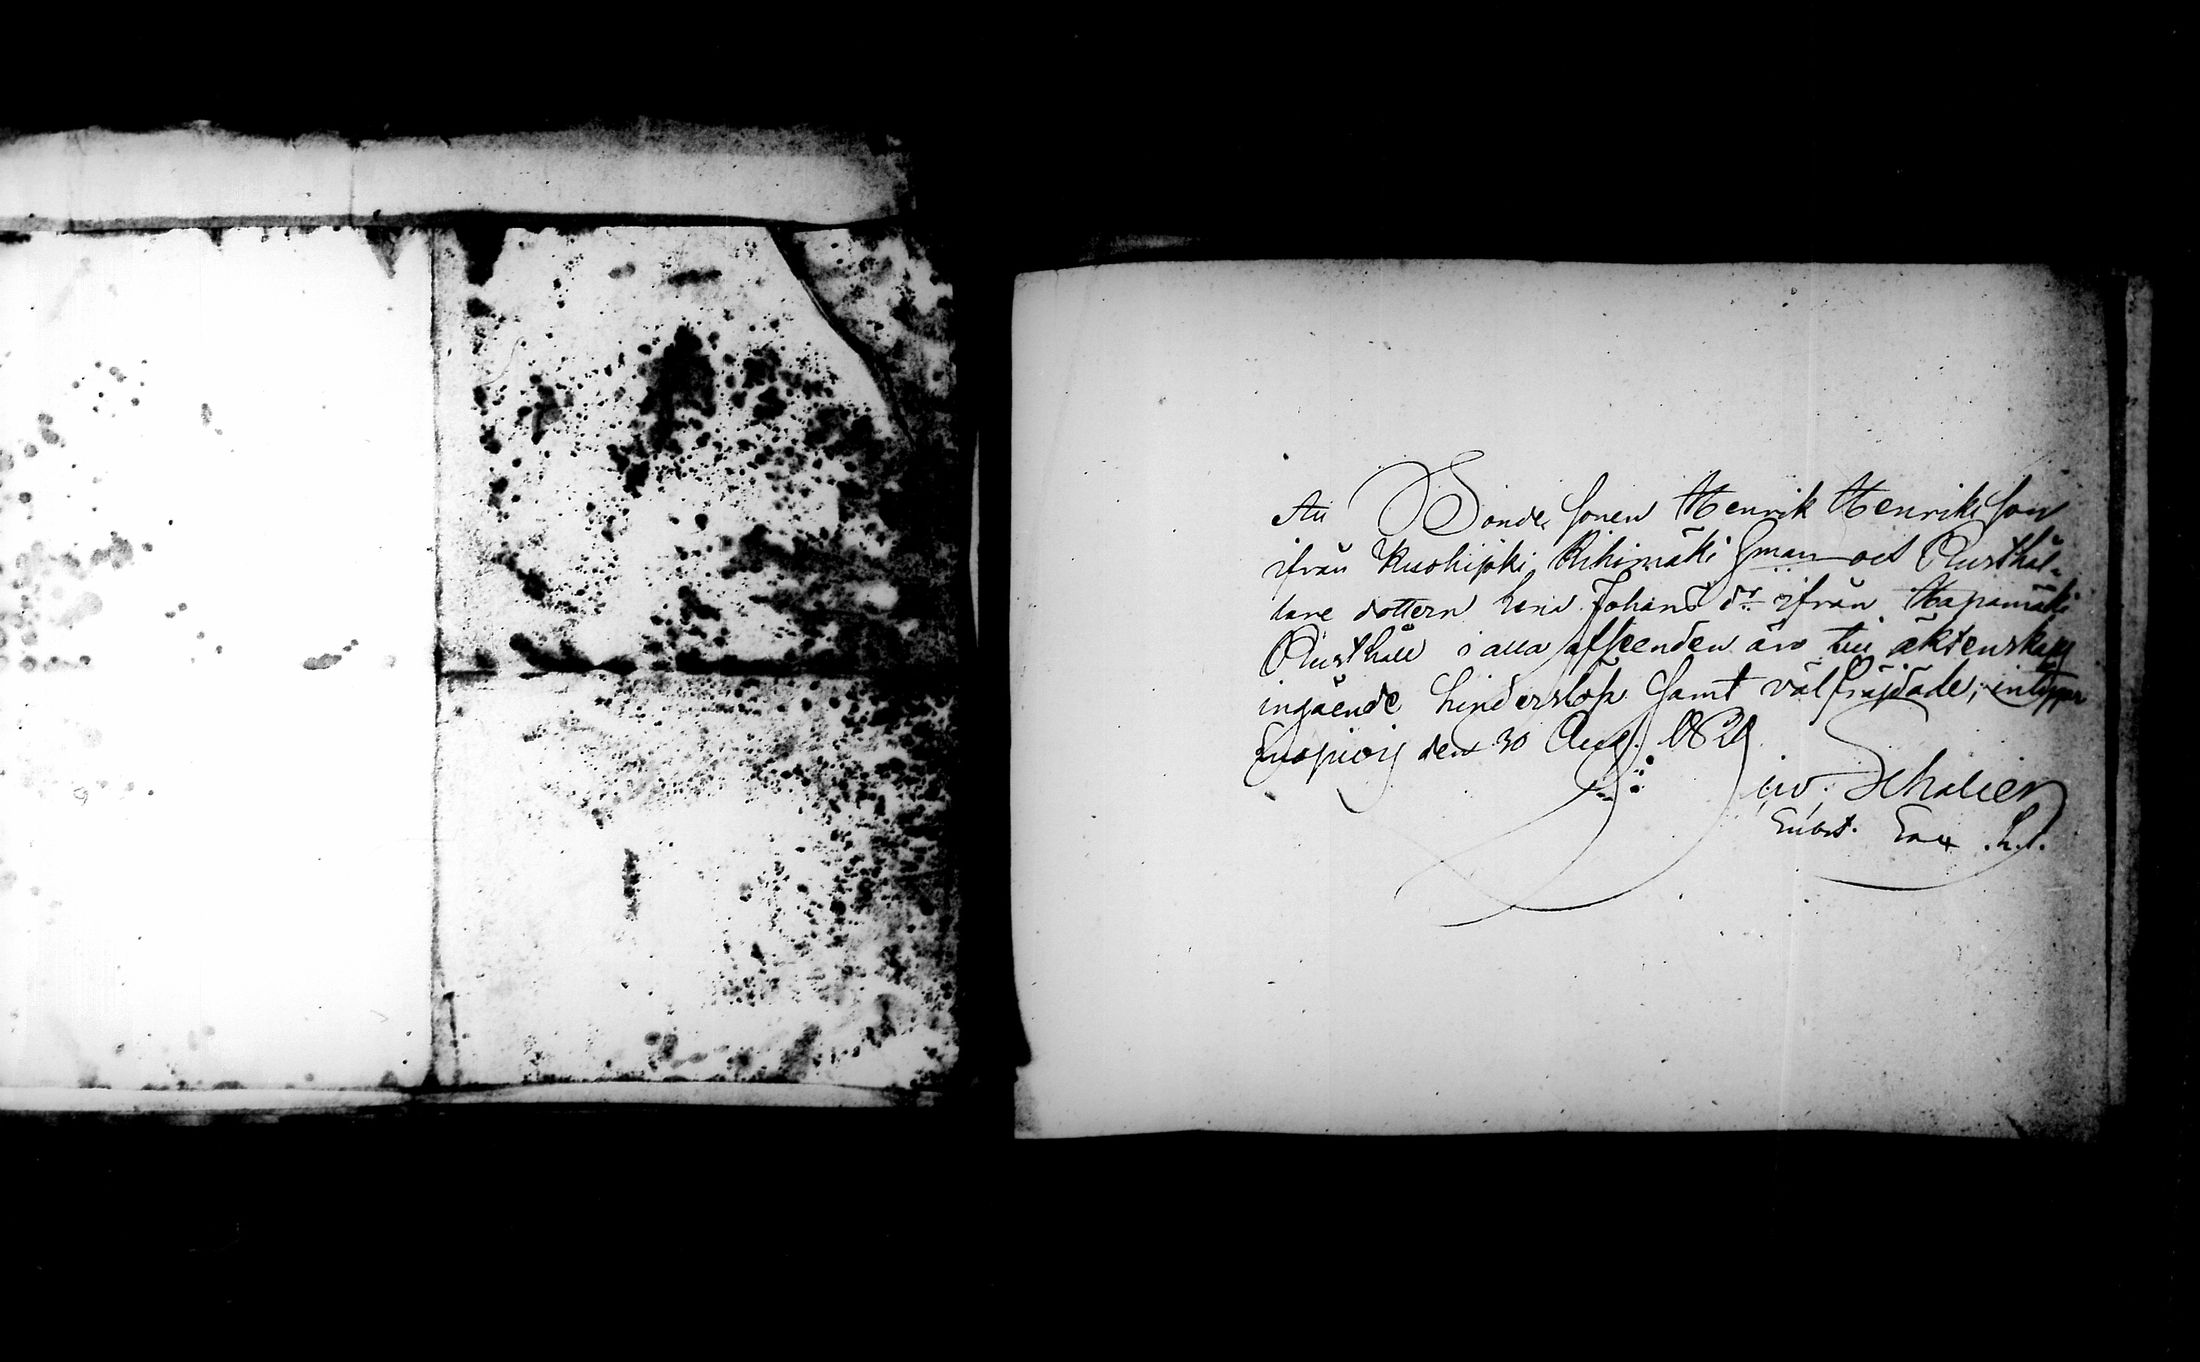 Att Bonde sonen Henrik Henriksson
ifrån Kuohijoki Rihimäki hman och Rusthål-
lare dottern Lena Johans dr ifrån Hapamäki
Rusthåll i alla afseenden äro till äktenskaps
ingående hinderslöse samt välfräjdade, intygar
den 30 Aug. 1821